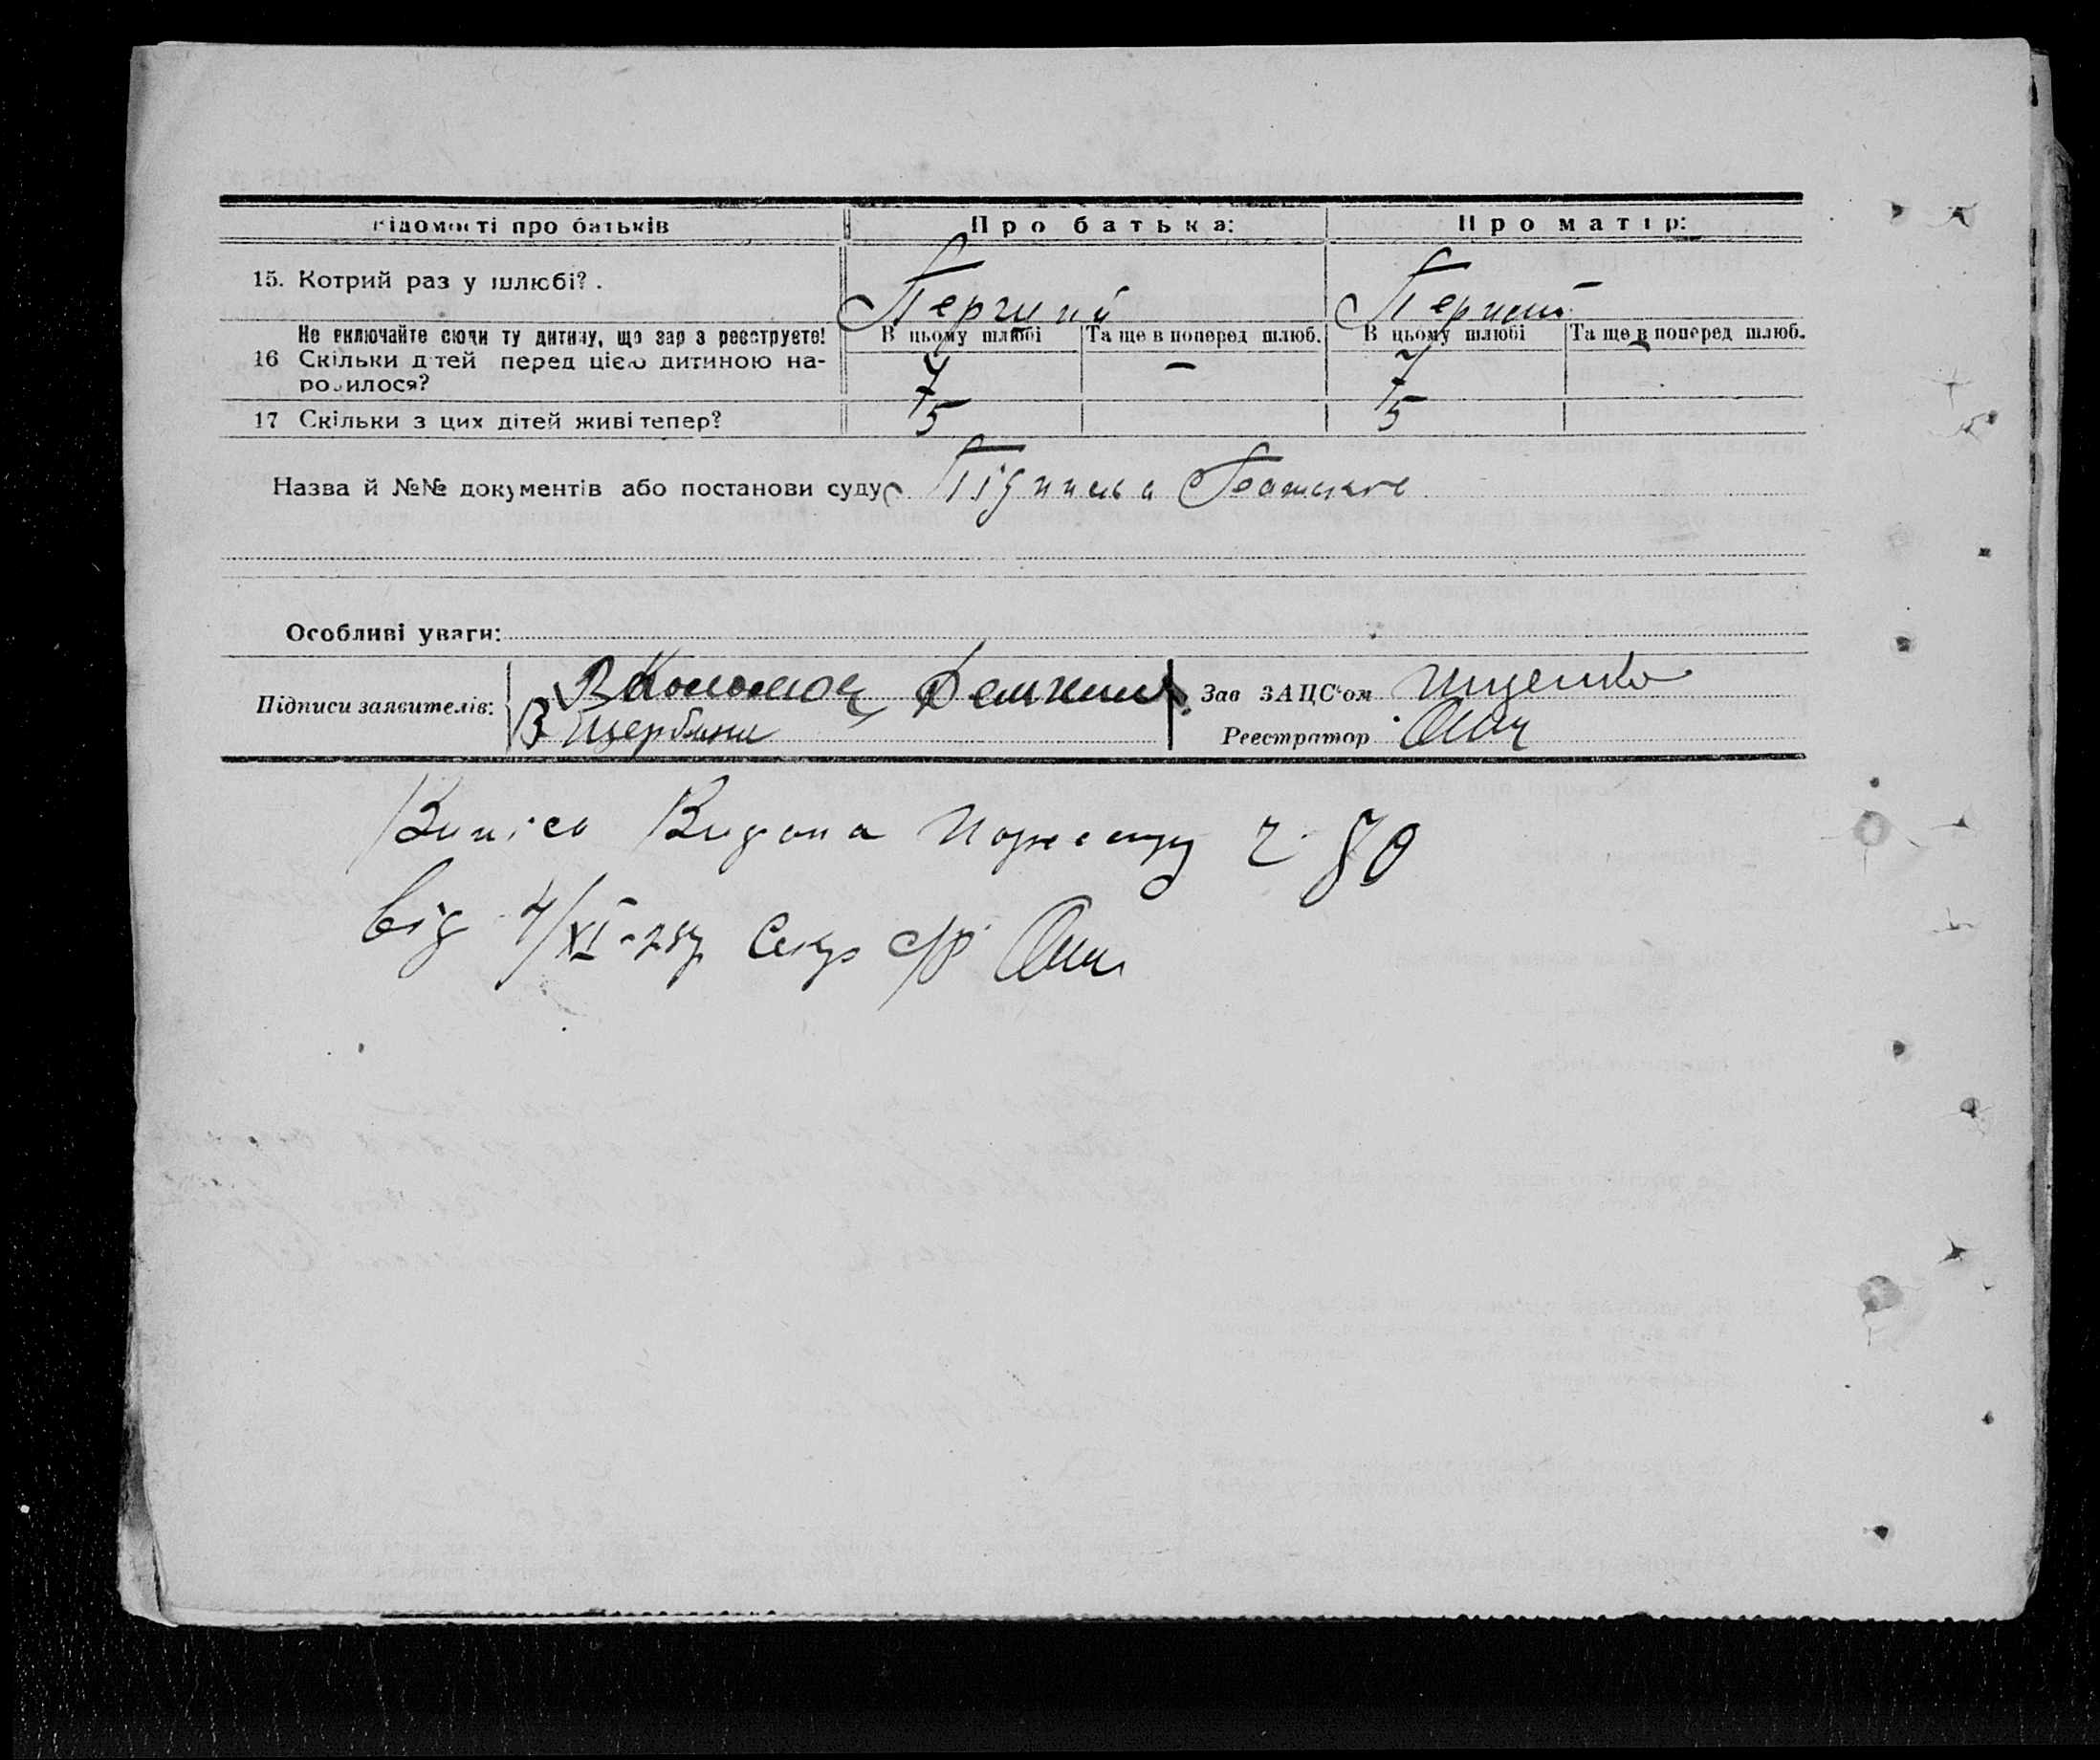 Відомості про батьків Про батька: Про матір:
15. Котрий раз у шлюбі? . Перший Перший
Не включайте сюди ту дитину, що зараз реєструєте! В цьому шлюбі Та ще в поперед шлюб. В цьому шлюбі Та ще в поперед шлюб.
16 Скільки дітей перед цією дитиною на-
родилося? 7 — 7 -
17 Скільки з цих дітей живі тепер? 5 5
Назва й №№ документів або постанови суду
Особливі уваги:
Підписи заявителів: В Коломоєц Зав ЗАЦС'ом Іщенко
В Щербина Реєстратор
Випіса Видана ч. 70
від 4/XI-28р Секр с/р